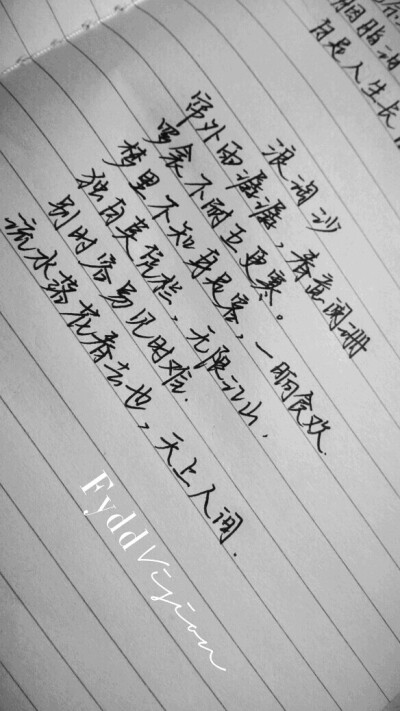 胭脂泪
自是人生长
浪淘沙
帘外雨潺潺，春意阑珊
罗衾不耐五更寒。
梦里不知身是客，一晌贪欢.
独自莫凭栏，无限江山，
别时容易见时难.
流水落花春去也，天上人间.
Fydd Vision